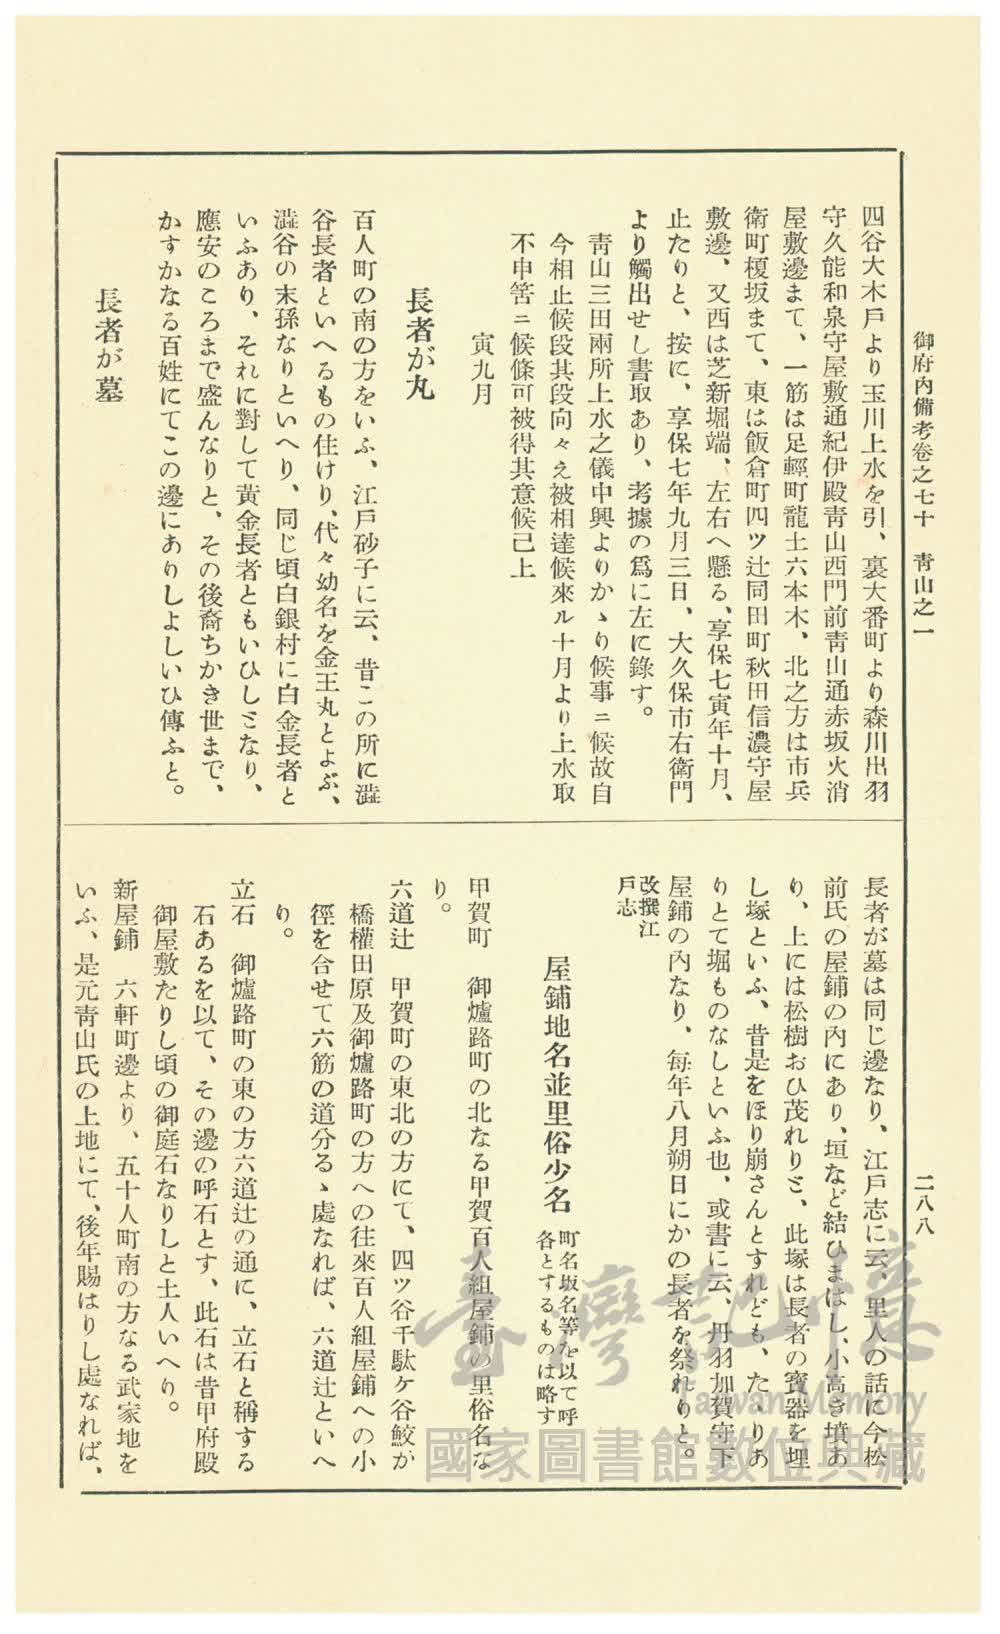 御府內備考卷之七十　靑山之一
二八八
四谷大木戶より玉川上水を引、裏大番町より森川出羽
守久能和泉守屋敷通紀伊殿靑山西門前靑山通赤坂火消
屋敷邊まて、一筋は足輕町龍土六本木、北之方は市兵
衛町榎坂まて、東は飯倉町四ツ辻同田町秋田信濃守屋
敷邊、又西は芝新堀端、左右へ懸る、享保七寅年十月、
止たりと、按に、享保七年九月三日、大久保市右衛門
より觸出せし書取あり、考據の爲に左に錄す。
靑山三田兩所上水之儀中興よりかゝり候事ニ候故自
今相止候段其段向々え被相達候來ル十月より上水取
不申筈ニ候條可被得其意候已上
寅九月
長者が丸
百人町の南の方をいふ、江戶砂子に云、昔この所に澁
谷長者といへるもの住けり、代々幼名を金王丸とよぶ、
澁谷の末孫なりといへり、同じ頃白銀村に白金長者と
いふあり、それに對して黃金長者ともいひしとなり、
應安のころまで盛んなりと、その後裔ちかき世まで、
かすかなる百姓にてこの邊にありしよしいひ傳ふと。
長者が墓
長者が墓は同じ邊なり、江戶志に云、里人の話に今松
前氏の屋鋪の內にあり、垣など結ひまはし、小高き墳あ
り、上には松樹おひ茂れりと、此塚は長者の寶器を埋
し塚といふ、昔是をほり崩さんとすれども、たゝりあ
りとて堀ものなしといふ也、或書に云、丹羽加賀守下
屋鋪の內なり、每年八月朔日にかの長者を祭れりと。
改撰江
戶志
屋鋪地名並里俗少名
町名坂名等を以て呼
各とするものは略す
甲賀町　御爐路町の北なる甲賀百人組屋鋪の里俗名な
り。
六道辻　甲賀町の東北の方にて、四ツ谷千駄ケ谷鮫が
橋權田原及御爐路町の方への往來百人組屋鋪への小
徑を合せて六筋の道分るゝ處なれば、六道辻といへ
り。
立石　御爐路町の東の方六道辻の通に、立石と稱する
石あるを以て、その邊の呼石とす、此石は昔甲府殿
御屋敷たりし頃の御庭石なりしと土人いへり。
新屋鋪　六軒町邊より、五十人町南の方なる武家地を
いふ、是元靑山氏の上地にて、後年賜はりし處なれば、
臺灣記憶
Taiwan Memory
國家圖書館數位典藏